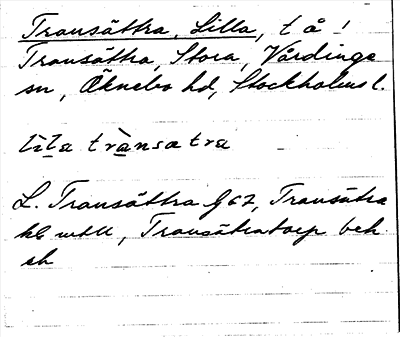 Transättra, Lilla, t å !
Transättra, Stora, Vårdinge
sn, Öknebo hd, Stockholms l.
lila transatra
L. Transättra G 67, Transätra
ke wtll, Transätratorp bek.
ek